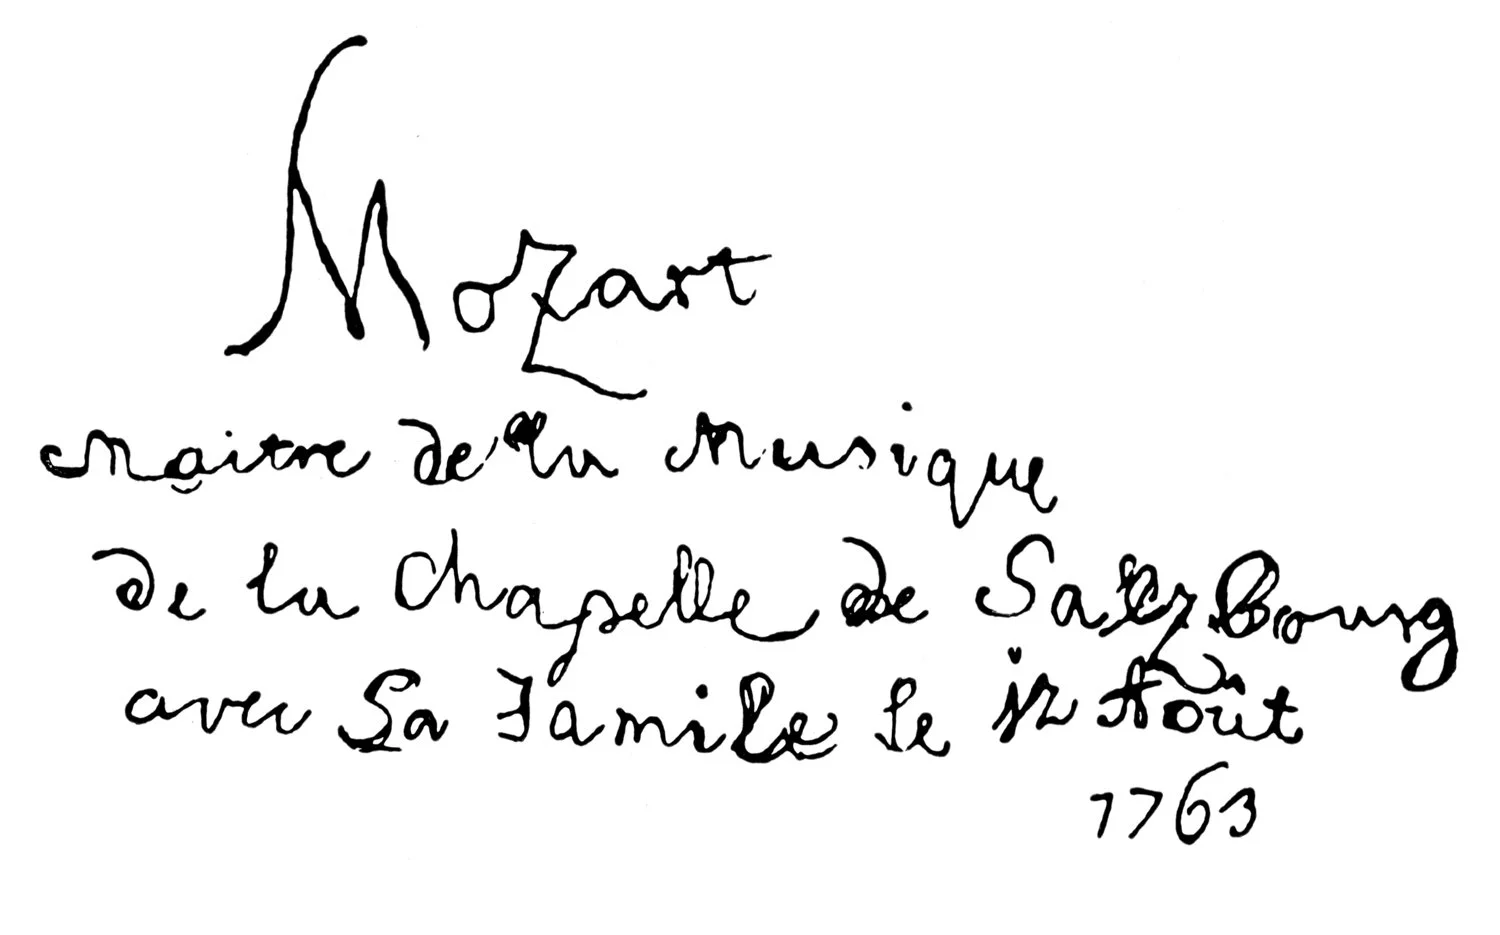 Mozart
Maitre de la Musique
de la Chapelle de SalzBourg
avec Sa Famille le 12 Août
1763